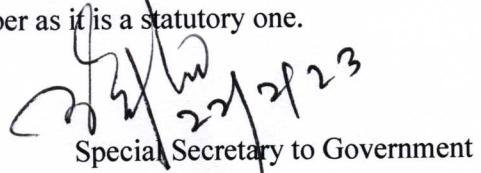 per as it is a statutory one.
22/2/23
Special Secretary to Government